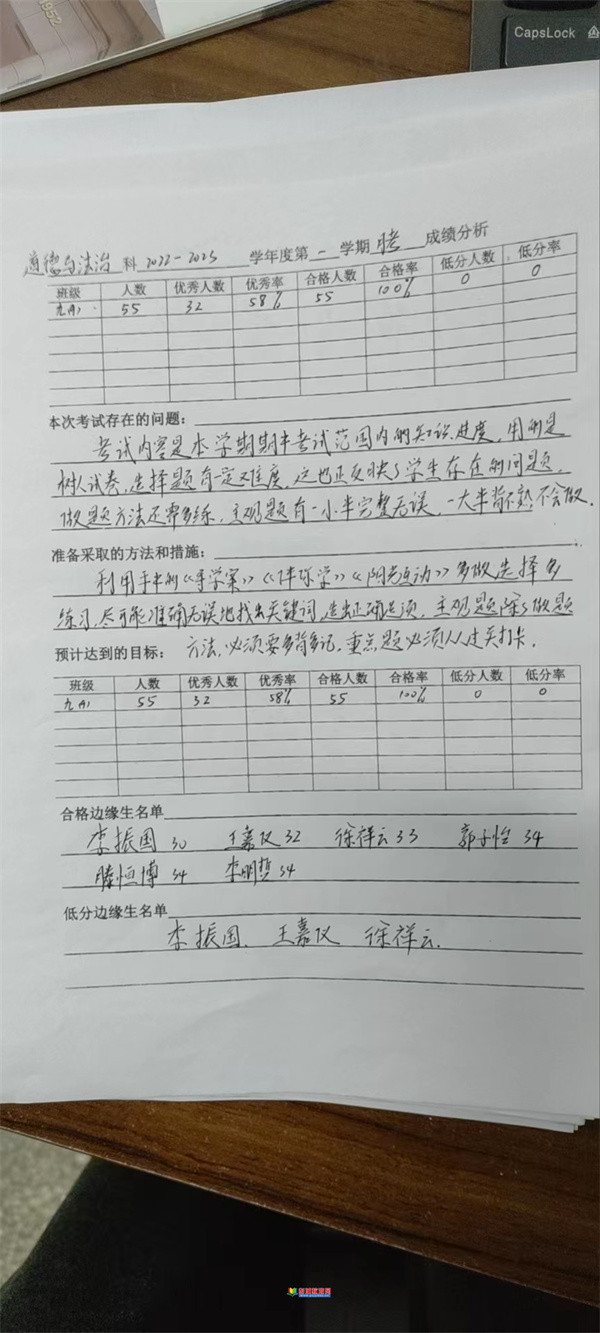 1952
CapsLock
道德与法治 科 2022-2023 学年度第 一 学期 月考 成绩分析
班级 人数 优秀人数 优秀率 合格人数 合格率 低分人数 低分率
九(4) 55 32 58% 55 100% 0 0
本次考试存在的问题:
考试内容是本学期期中考试范围内的知识进度,用的是
树人试卷,选择题有一定难度,这也正反映了学生存在的问题,
做题方法还要多练,主观题有一小半完整无误,一大半背不熟,不会做.
准备采取的方法和措施:
利用手中的《导学案》《伴你学》《阳光互动》多做选择多
练习,尽可能准确无误地找出关键词,选出正确选项,主观题除了做题
预计达到的目标: 方法,必须要多背多记,重点题必须人人过关打卡.
班级 人数 优秀人数 优秀率 合格人数 合格率 低分人数 低分率
九(4) 55 32 58% 55 100% 0 0
合格边缘生名单
李振国 30 王嘉仪 32 徐祥云 33 郭子怡 34
滕恒博 34 李明哲 34
低分边缘生名单
李振国. 王嘉仪 徐祥云.